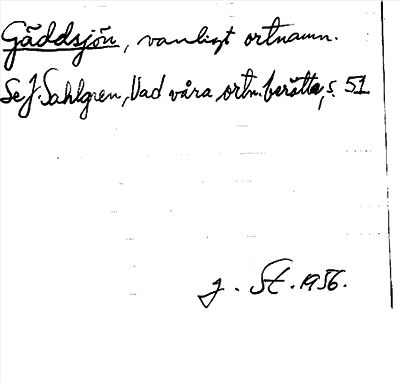 Gäddsjön, vanligt ortnamn.
Se J. Sahlgren, Vad våra ortn. berätta, s. 51
J. St. 1956.